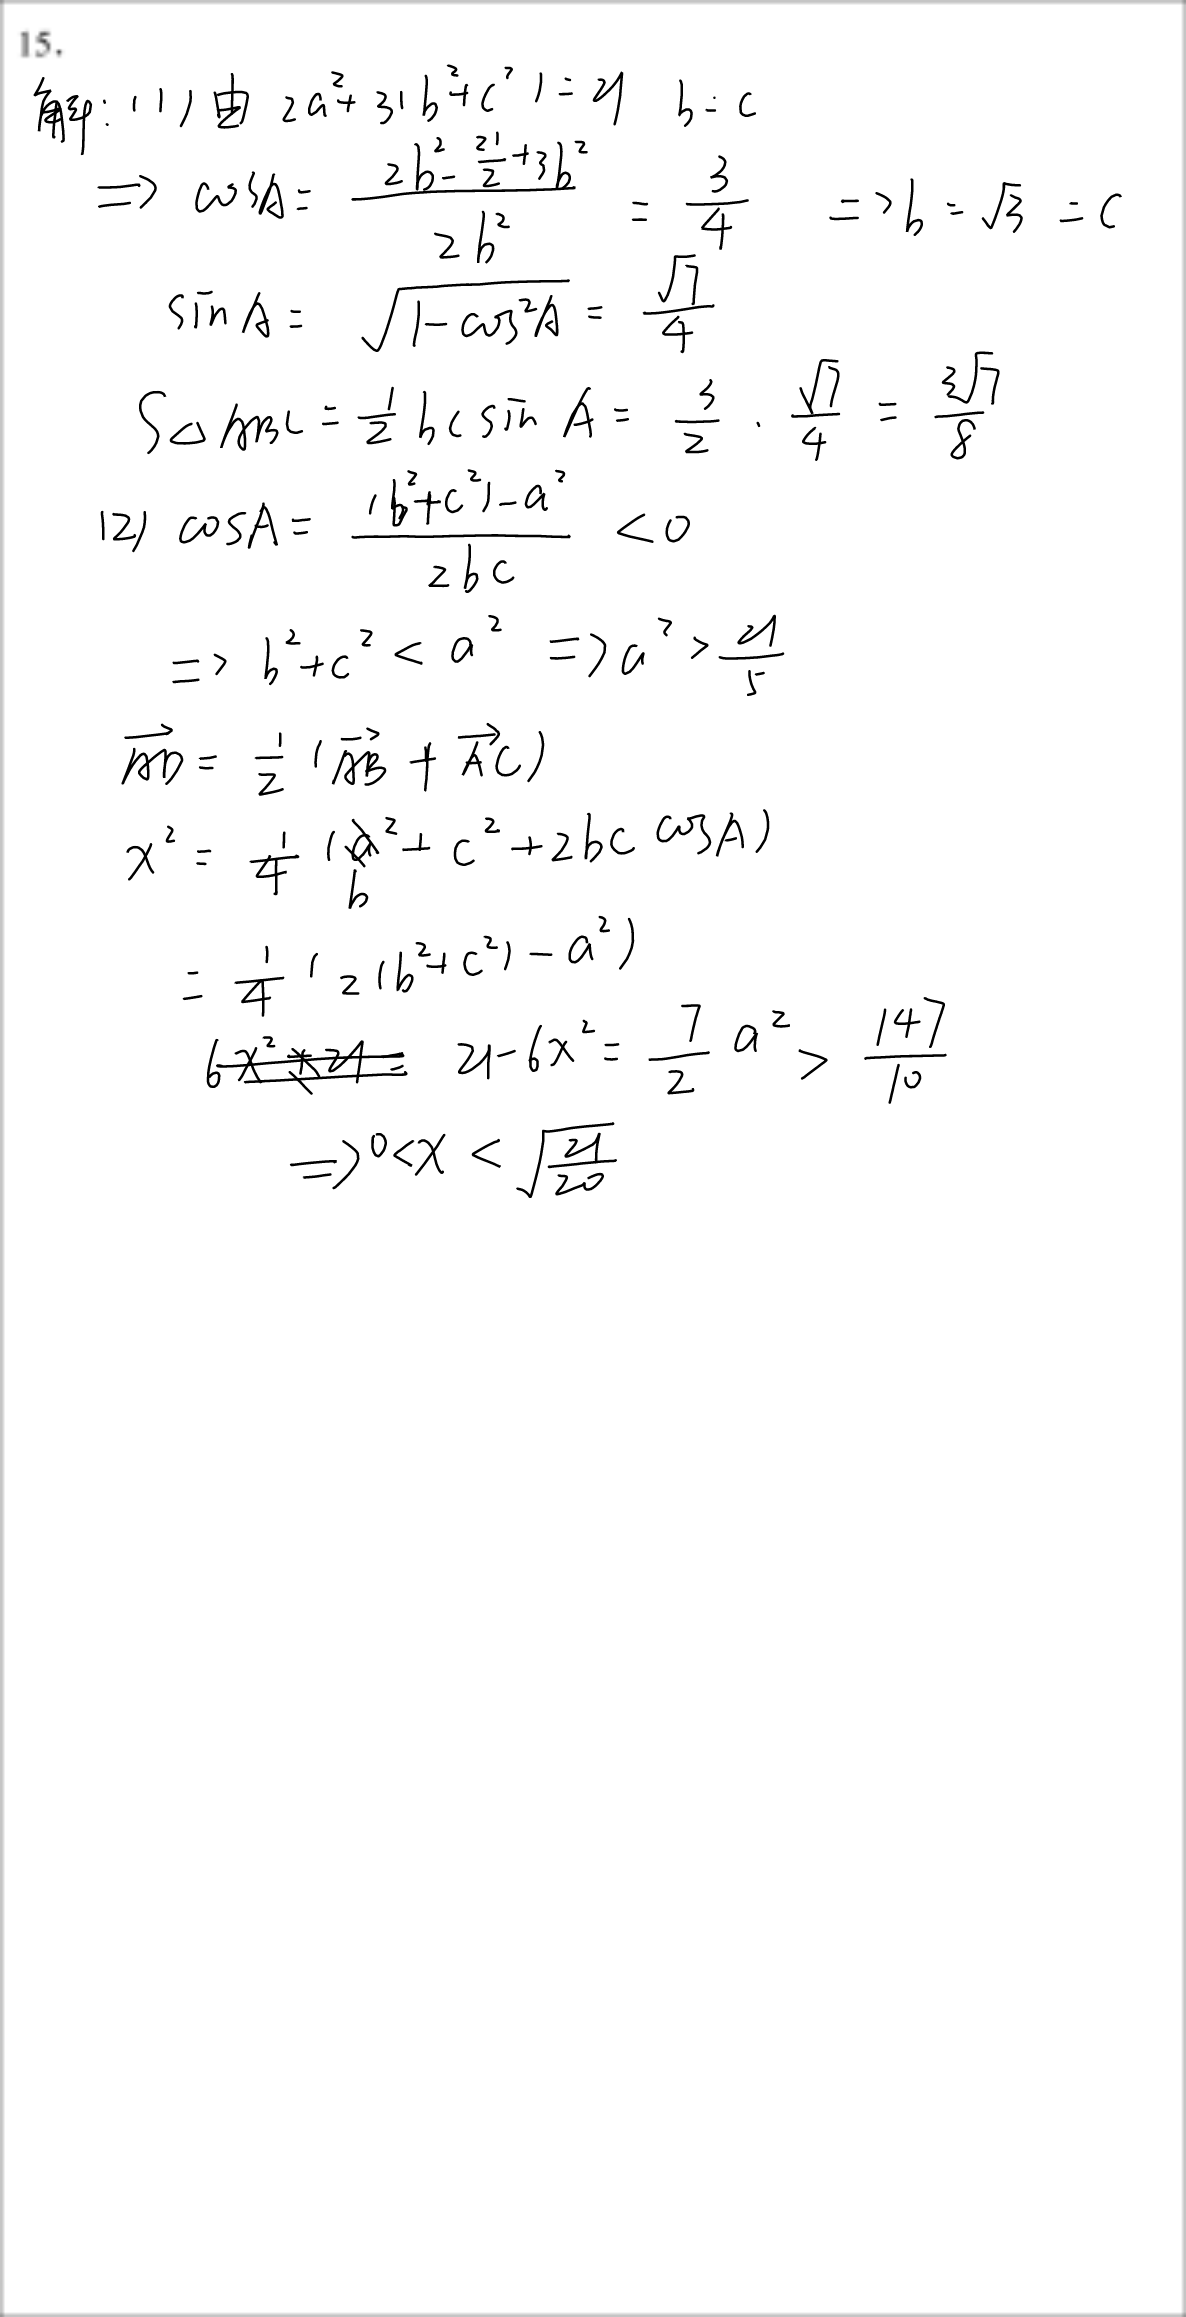 15.
解：(1) 由 2a²+3(b²+c²)=21 b=c
=> cosA = (2b²-21/2+3b²)/(2b²) = 3/4 => b=√3=c
sinA = √(1-cos²A) = √7/4
S△ABC = 1/2 bc sin A = 3/2 · √7/4 = 3√7/8
(2) cosA = ((b²+c²)-a²)/(2bc) <0
=> b²+c² < a² => a² > 21/5
AD⃗ = 1/2 (AB⃗ + AC⃗)
x² = 1/4 (b²+c²+2bc cosA)
= 1/4 (2(b²+c²)-a²)
21-6x² = 7/2 a² > 147/10
=> 0<x<√(21/20)